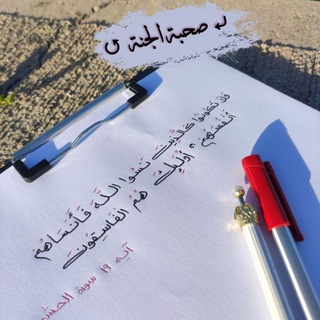 صحبة الجنة
ولا تكونوا كالذين نسوا الله فأنساهم
أنفسهم أولئك هم الفاسقون
آية ١٩ سورة الحشر